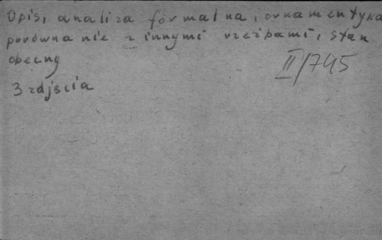 Opis, analiza formalna, ornamentyka
porównanie z innymi rzeźbami, stan
obecny
II/745
3 zdjęcia